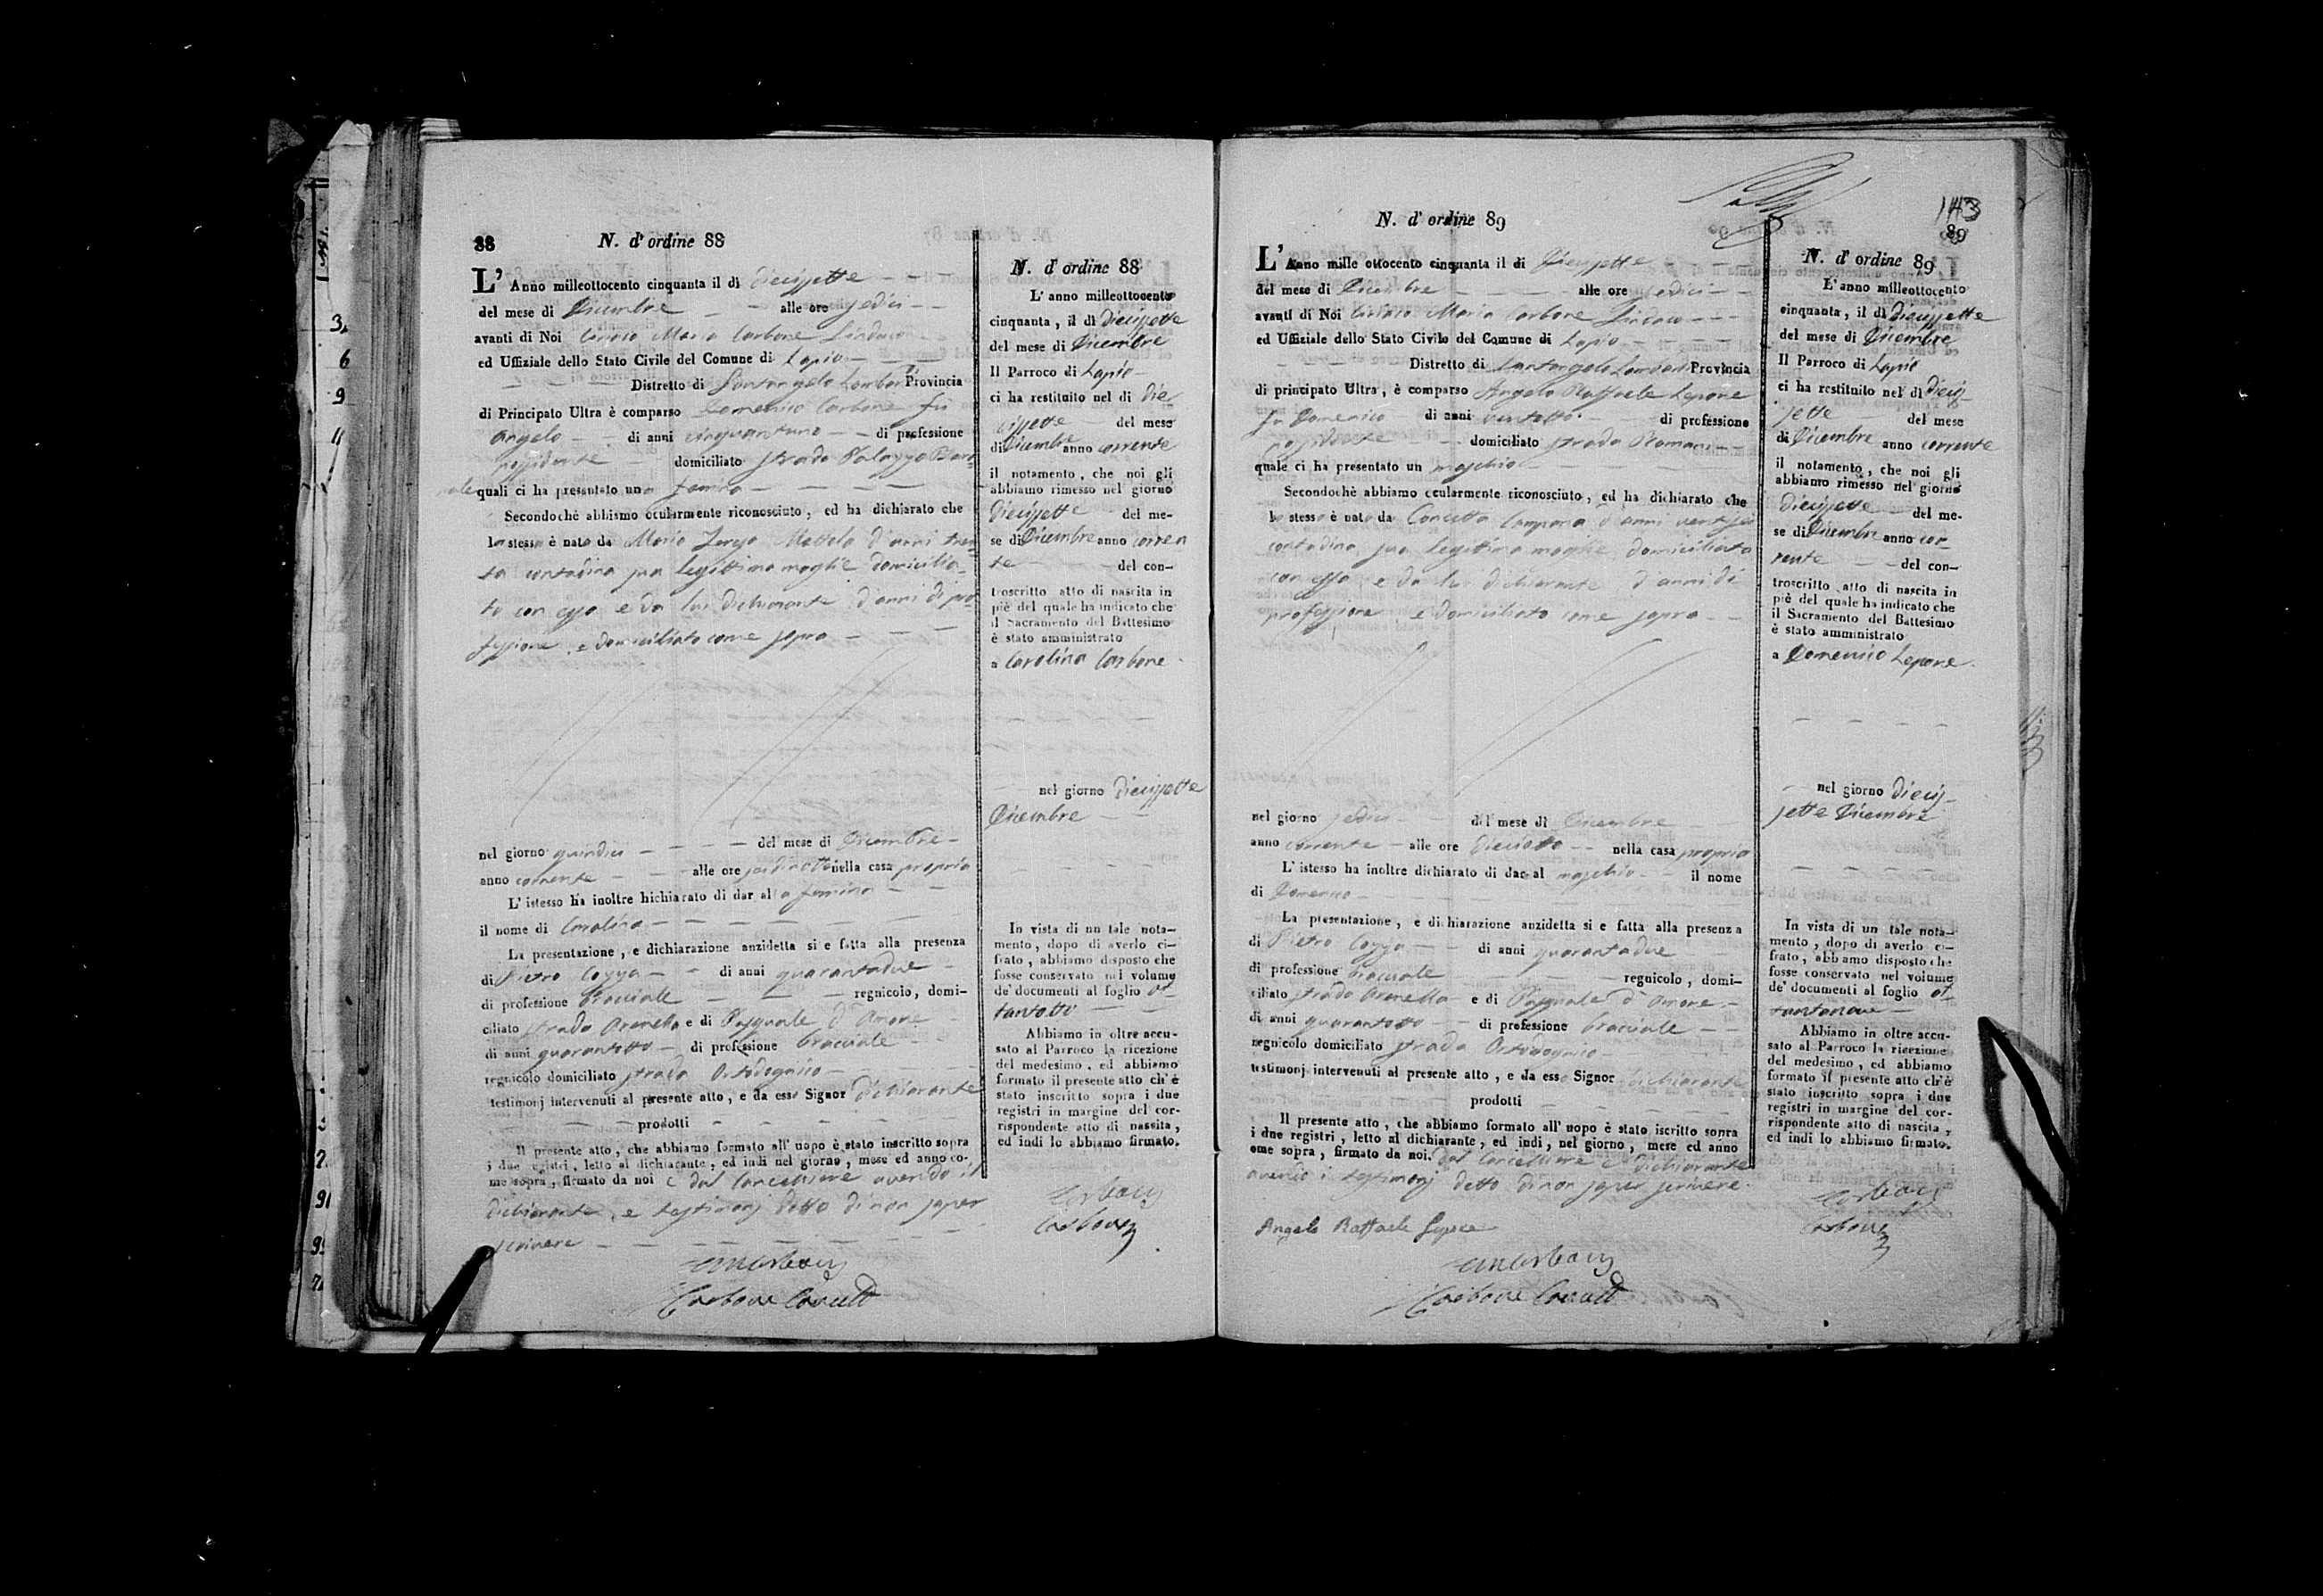 88
N. d' ordine 88
L' Anno milleottocento cinquanta il di diecissette
del mese di Dicembre alle ore sedici
avanti di Noi Ciriaco Maria Carbone Sindaco
ed Uffiziale dello Stato Civile del Comune di Lapio
Distretto di Santangelo Lombardi Provincia
di Principato Ultra è comparso Domenico Carbone fu
Angelo di anni cinquantuno di professione
possidente domiciliato strada Palazzo
quali ci ha presentato una femina
Secondochè abbiamo ocularmente riconosciuto, ed ha dichiarato che
la stessa è nata da Maria Teresa d'anni tren-
ta contadina sua legittima moglie domicilia-
ta con esso e da lui dichiarante d'anni di pro-
fessione, e domiciliato come sopra
nel giorno quindici del mese di Dicembre
anno corrente alle ore nella casa propria
L' istesso ha inoltre hichiarato di dar alla femina
il nome di Carolina
La presentazione, e dichiarazione anzidetta si e fatta alla presenza
di Pietro Cozza di anni quarantadue
di professione bracciale regnicolo, domi-
ciliato strada Arenella e di Pasquale d'Amore
di anni quarantotto di professione bracciale
regnicolo domiciliato strada
testimonj intervenuti al presente atto, e da esso Signor dichiarante
prodotti
Il presente atto, che abbiamo formato all' uopo è stato inscritto sopra
i due registri, letto al dichiarante, ed indi nel giorno, mese ed anno co-
me sopra, firmato da noi e dal Cancelliere avendo il
dichiarante, e testimonj detto di non saper
scrivere
Carbone
N. d' ordine 88
L' anno milleottocento
cinquanta, il di diecissette
del mese di Dicembre
Il Parroco di Lapio
ci ha restituito nel di die-
cissette del mese
di Dicembre anno corrente
il notamento, che noi gli
abbiamo rimesso nel giorno
diecissette del me-
se di Dicembre anno corren
te del con-
troscritto atto di nascita in
piè del quale ha indicato che
il Sacramento del Battesimo
è stato amministrato
a Carolina Carbone
nel giorno diecissette
Dicembre
In vista di un tale nota-
mento, dopo di averlo ci-
frato, abbiamo disposto che
fosse conservato nel volume
de' documenti al foglio ot-
tantotto
Abbiamo in oltre accu-
sato al Parroco la ricezione
del medesimo, ed abbiamo
formato il presente atto ch'è
stato inscritto sopra i due
registri in margine del cor-
rispondente atto di nascita,
ed indi lo abbiamo firmato.
Carbone
143
89
N. d' ordine 89
L' Anno mille ottocento cinquanta il di diecissette
del mese di Dicembre alle ore sedici
avanti di Noi Ciriaco Maria Carbone Sindaco
ed Uffiziale dello Stato Civile del Comune di Lapio
Distretto di Santangelo Lombardi Provincia
di principato Ultra, è comparso Angelo Raffaele Lepore
fu Domenico di anni ventotto di professione
possidente domiciliato strada Romani
quale ci ha presentato un maschio
Secondochè abbiamo ocularmente riconosciuto, ed ha dichiarato che
lo stesso è nato da Concetta Campana d'anni
contadina sua legittima moglie domiciliata
con esso e da lui dichiarante d'anni di
professione e domiciliato come sopra
nel giorno sedici del mese di Dicembre
anno corrente alle ore dieciotto nella casa propria
L' istesso ha inoltre dichiarato di dar al maschio il nome
di Domenico
La presentazione, e dichiarazione anzidetta si e fatta alla presenza
di Pietro Cozza di anni quarantadue
di professione bracciale regnicolo, domi-
ciliato strada Arenella e di Pasquale d'Amore
di anni quarantotto di professione bracciale
regnicolo domiciliato strada
testimonj intervenuti al presente atto, e da esso Signor dichiarante
prodotti
Il presente atto, che abbiamo formato all' uopo è stato iscritto sopra
i due registri, letto al dichiarante, ed indi, nel giorno, mese ed anno
ome sopra, firmato da noi, dal Cancelliere e dichiarante
avendo i testimonj detto di non saper scrivere
Angelo Raffaele Lepore
Carbone
N. d' ordine 89
L' anno milleottocento
cinquanta, il di diecissette
del mese di Dicembre
Il Parroco di Lapio
ci ha restituito nel di diecis-
sette del mese
di Dicembre anno corrente
il notamento, che noi gli
abbiamo rimesso nel giorno
diecissette del me-
se di Dicembre anno cor-
rente del con-
troscritto atto di nascita in
piè del quale ha indicato che
il Sacramento del Battesimo
è stato amministrato
a Domenico Lepore
nel giorno diecis-
sette Dicembre
In vista di un tale nota-
mento, dopo di averlo ci-
frato, abbiamo disposto che
fosse conservato nel volume
de' documenti al foglio ot-
tantanove
Abbiamo in oltre accu-
sato al Parroco la ricezione
del medesimo, ed abbiamo
formato il presente atto ch'è
stato inscritto sopra i due
registri in margine del cor-
rispondente atto di nascita,
ed indi lo abbiamo firmato.
Carbone